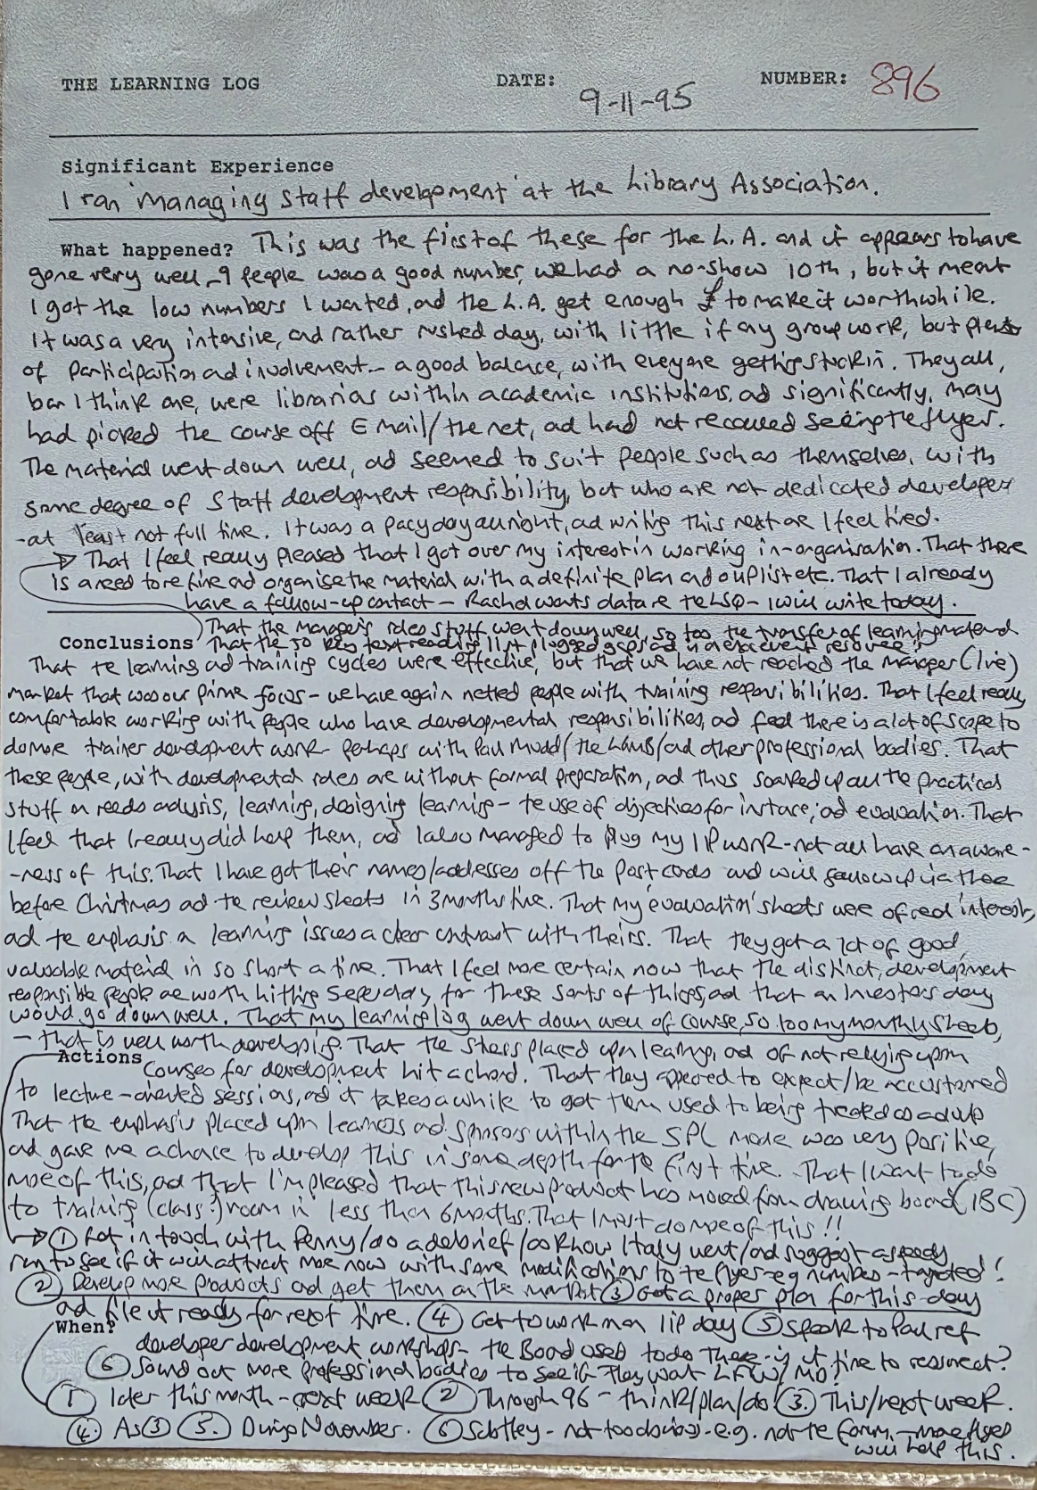 THE LEARNING LOG DATE: 9-11-95 NUMBER: 896
Significant Experience
I ran 'managing staff development' at the Library Association.
What happened? This was the first of these for the L.A. and it appears to have
gone very well - 9 people was a good number, we had a no-show 10th, but it meant
I got the low numbers I wanted, and the L.A. get enough £ to make it worthwhile.
It was a very intensive, and rather rushed day, with little if any group work, but plenty
of participation and involvement - a good balance, with everyone getting stuck in. They all,
bar I think one, were librarians within academic institutions, and significantly, many
had picked the course off E mail/the net, and had not received seeing the flyer.
The material went down well, and seemed to suit people such as themselves, with
some degree of staff development responsibility, but who are not dedicated developers
- at least not full time. It was a pacy day all right, and writing this next one I feel tired.
→ That I feel really pleased that I got over my interest in working in-organisation. That there
is a need to refine and organise the material with a definite plan and ohp list etc. That I already
have a follow-up contact - Rachel wants data re the LSQ - I will write today.
That the manager's roles stuff went down well, so too the transfer of learning material
Conclusions That the 30 key text reading list plugged gaps and is an excellent resource!
That te learning and training cycles were effective, but that we have not reached the manager (line)
market that was our prime focus - we have again netted people with training responsibilities. That I feel really
comfortable working with people who have developmental responsibilities, and feel there is a lot of scope to
do more trainer development work - perhaps with Paul Mudd/the and other professional bodies. That
these people, with developmental roles are without formal preparation, and thus soaked up all the practical
stuff on needs analysis, learning, designing learning - te use of objectives for instance, and evaluation. That
I feel that I really did help them, and I also managed to plug my IIP work - not all have an aware-
-ness of this. That I have got their names/addresses off the post cards and will follow up via these
before Christmas and te review sheets in 3 months time. That my 'evaluation' sheets were of real interest,
and te emphasis on learning issues a clear contrast with theirs. That they got a lot of good,
valuable material in so short a time. That I feel more certain now that the distinct, development
responsible people are worth hitting separately, for these sorts of things, and that an Investors day
would go down well. That my learning log went down well of course, so too my monthly sheets,
- that is well worth developing. That the stress placed upon learning, and of not relying upon
Actions courses for development hit a chord. That they appeared to expect/be accustomed
to lecture-oriented sessions, and it takes a while to get them used to being treated as adults
That the emphasis placed upon learners and sponsors within the SPL model was very positive,
and gave me a chance to develop this in some depth for te first time. That I want to do
more of this, and that I'm pleased that this new product has moved from drawing board (IBC)
to training (class!) room in less than 6 months. That I must do more of this!!
→ ① Get in touch with Penny/do a debrief/ask how Italy went/and suggest a speedy
run to see if it will attract more now with some modifications to te flyer e.g. number - targeted!
② Develop more products and get them on the market ③ Get a proper plan for this day
and file it ready for next time. ④ Get to work on an iip day ⑤ Speak to Paul ref
When? developer development workshops - the Board used to do these - is it time to resurrect?
⑥ Sound out more professional bodies to see if they want
① later this month - next week ② Through 96 - think/plan/do ③. This/next week.
④. As ③ ⑤. During November. ⑥ Subtley - not too obvious - e.g. not te forum - more flyers
will help this.